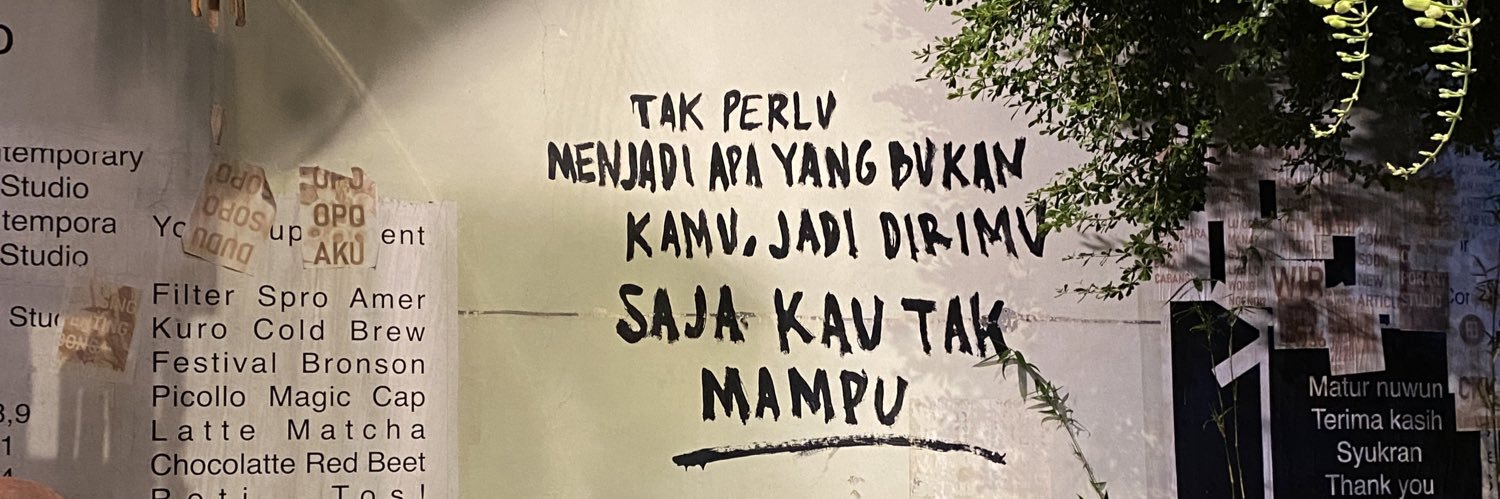 temporary
Studio
tempora
Studio
OPO
SOPO
DUDU
OPO
AKU
up
ent
Filter Spro Amer
Kuro Cold Brew
Festival Bronson
Picollo Magic Cap
Latte Matcha
Chocolatte Red Beet
Roti Tos!
TAK PERLU
MENJADI APA YANG BUKAN
KAMU. JADI DIRIMU
SAJA KAU TAK
MAMPU
WIR
COMING
SOON
NEW
ARTICL
Matur nuwun
Terima kasih
Syukran
Thank you